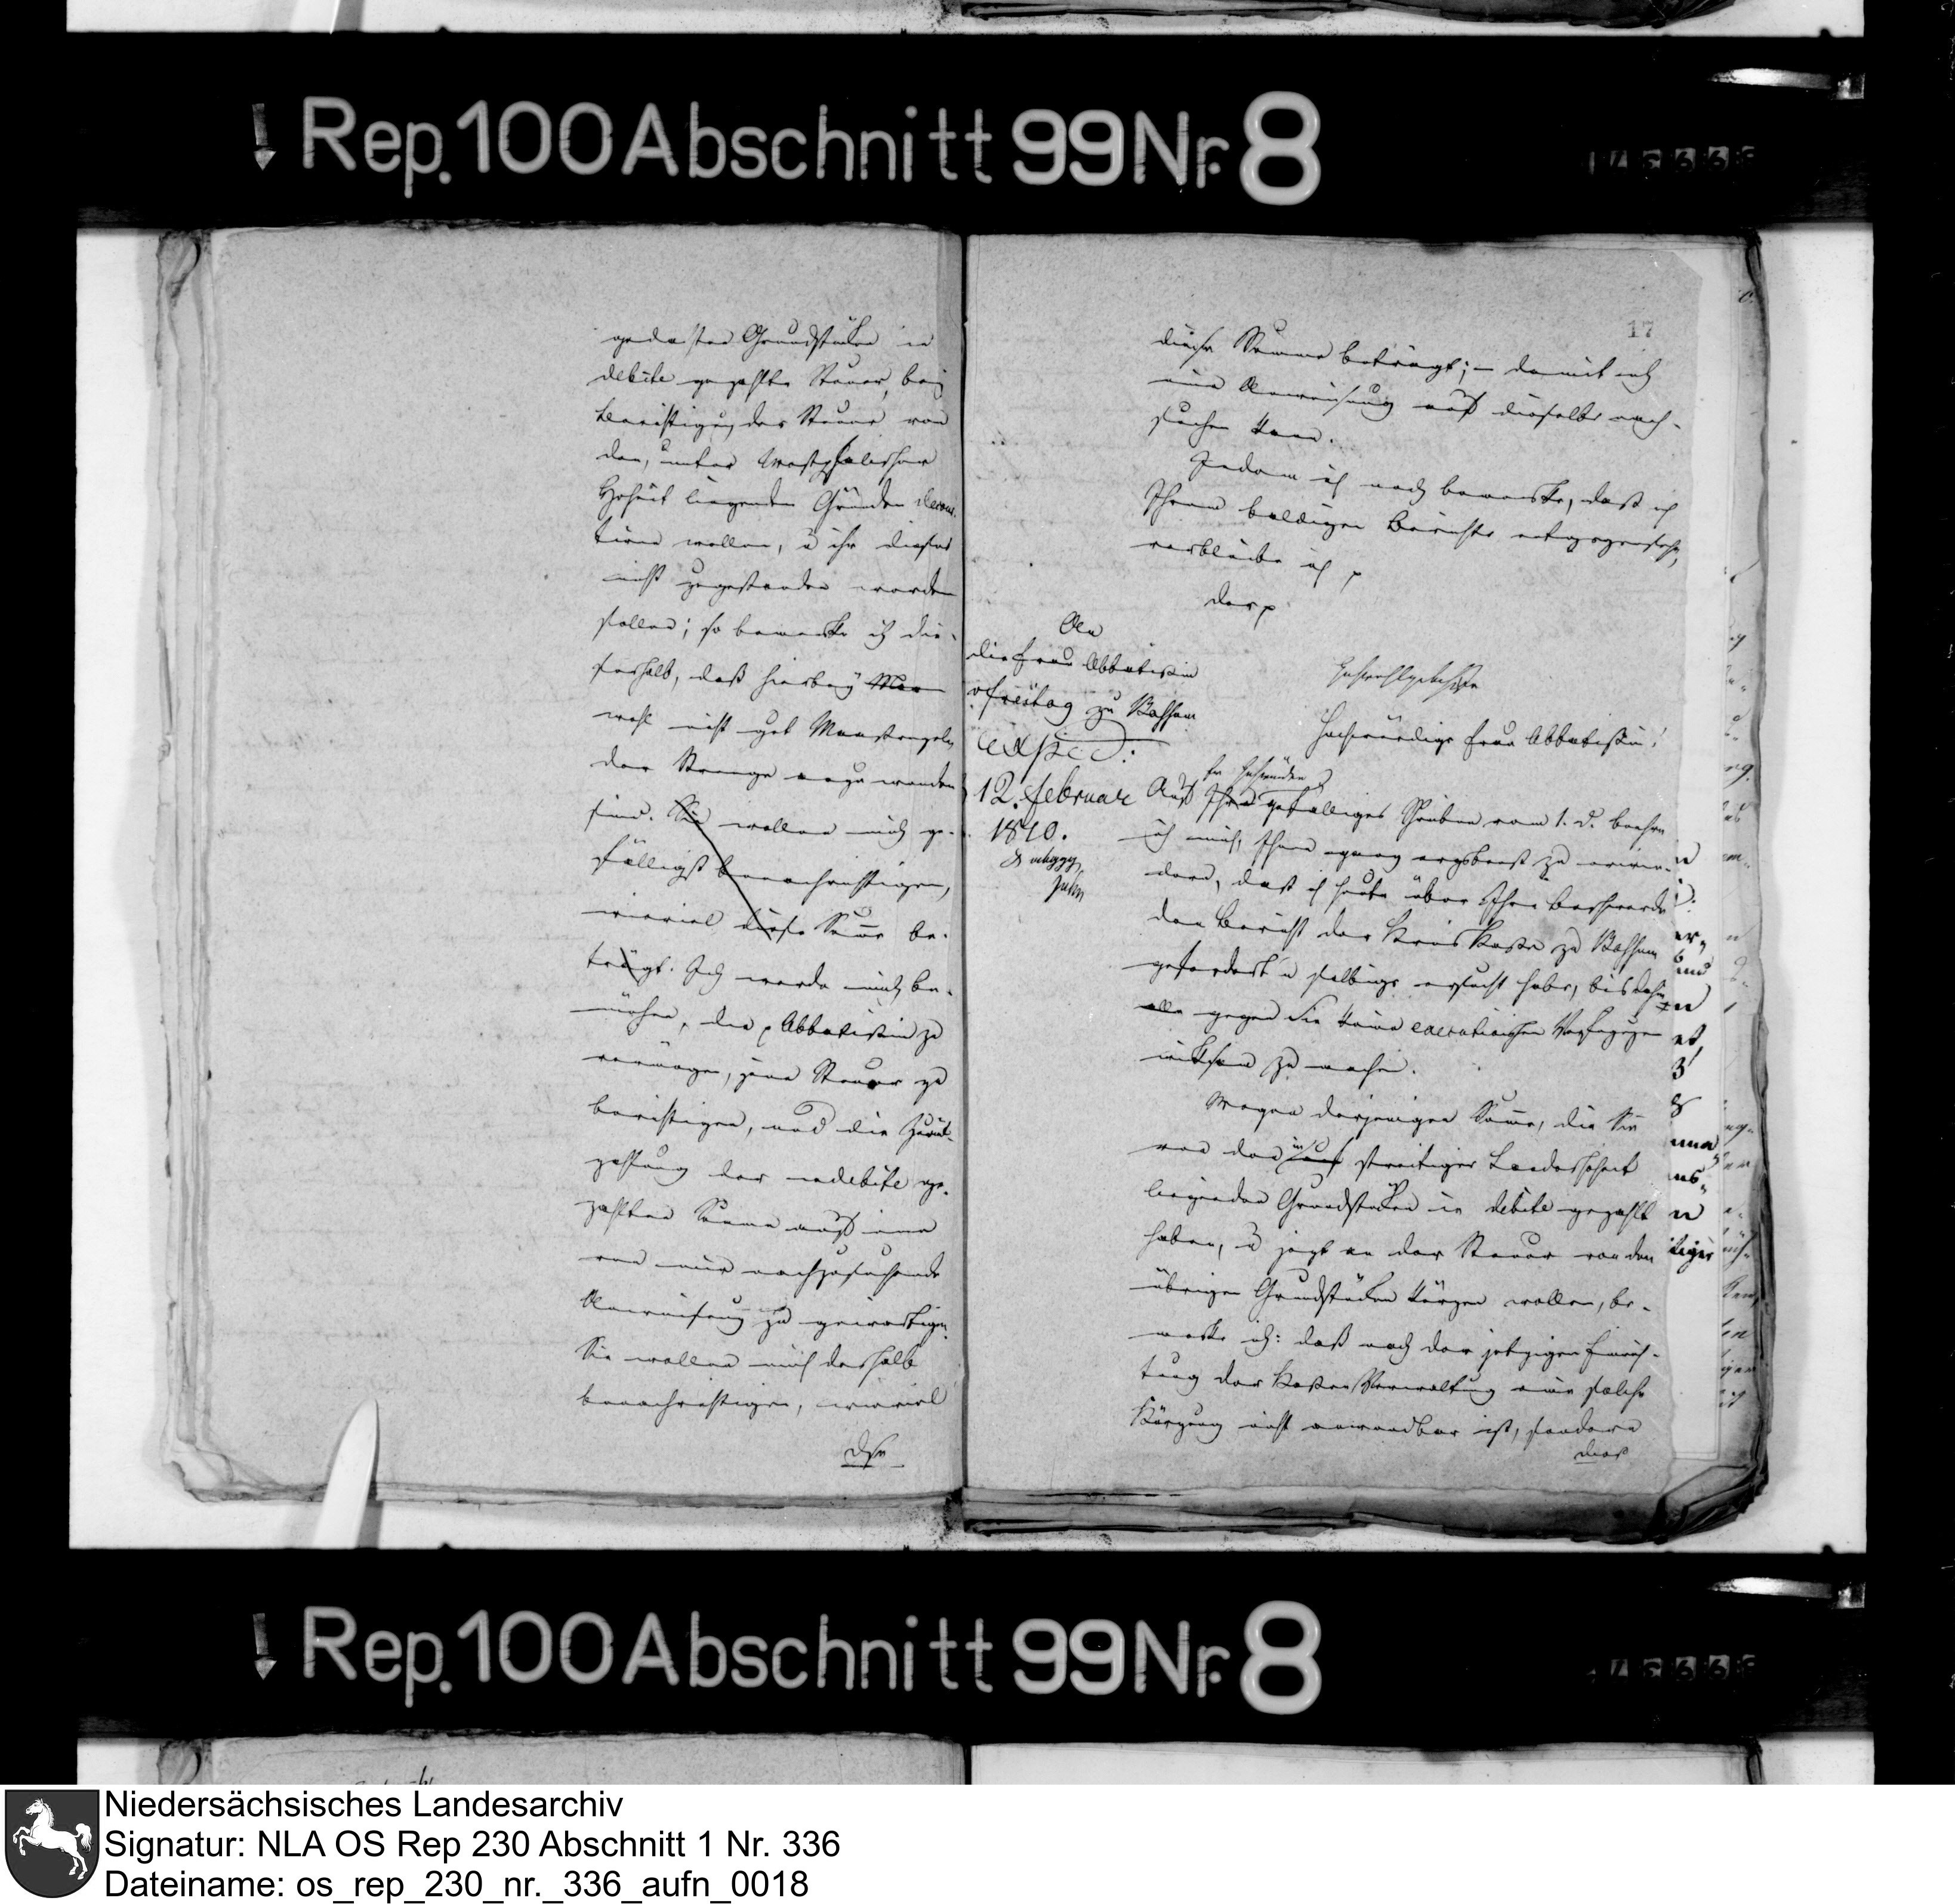 Rep. 100 Abschnitt 99 Nr. 8
gedachten Grundstücken in
debite gezahlte Steuer, bey
Berichtigung der Steuer von
den, unter Westphälischer
Hoheit liegenden Gründen decour-
tiren wollen, u ihr dieses
nicht zugestanden werden
sollen; so bemerke ich die-
serhalb, daß hierbey
wohl nicht gut Maasregeln
der Strenge anzuwenden
sind. Sie wollen mich ge-
fälligst benachrichtigen,
wieviel diese Summe be-
trägt. Ich werde mich be-
mühen, die Abbatissin zu
vermögen, jene Steuer zu
berichtigen, und die Zurük-
zahlung der indebite ge-
zahlten Summe auf eine
von mir nachzusuchende
Anweisung zu gewärtigen.
Sie wollen mich deshalb
benachrichtigen, wieviel
diese
17
diese Summe beträgt; – damit ich
eine Anweisung auf dieselbe nach-
suchen kann.
Indem ich noch bemerke, daß ich
Ihrem baldigen Berichte entgegensehe,
verbleibe ich
der p
An
die Frau Abbatissin
v freitag zu Bassum
exped:
12. februar
1810.
Hochwürdige Frau Abbatissin!
Auf Ihr gefälliges Schreiben vom 1. d. beehre
ich mich, Ihnen ganz ergebenst zu erwie-
dern, daß ich heute über Ihre Beschwerde
den Bericht der Kreis Kasse zu Bassum
gefordert u selbige ersucht habe, bis dahin
gegen Sie keine executivischen Verfügungen
wirksam zu machen.
Wegen derjenigen Summe, die Sie
von den in streitiger Landeshoheit
liegenden Grundstücken in debite gezahlt
haben, u jetzt an der Steuer von den
übrigen Grundstücken kürzen wollen, be-
merke ich: daß nach der jetzigen Einrich-
tung der Kassen Verwaltung eine solche
Kürzung nicht anwendbar ist, sondern
Rep. 100 Abschnitt 99 Nr. 8
Niedersächsisches Landesarchiv
Signatur: NLA OS Rep 230 Abschnitt 1 Nr. 336
Dateiname: os_rep_230_nr._336_aufn_0018